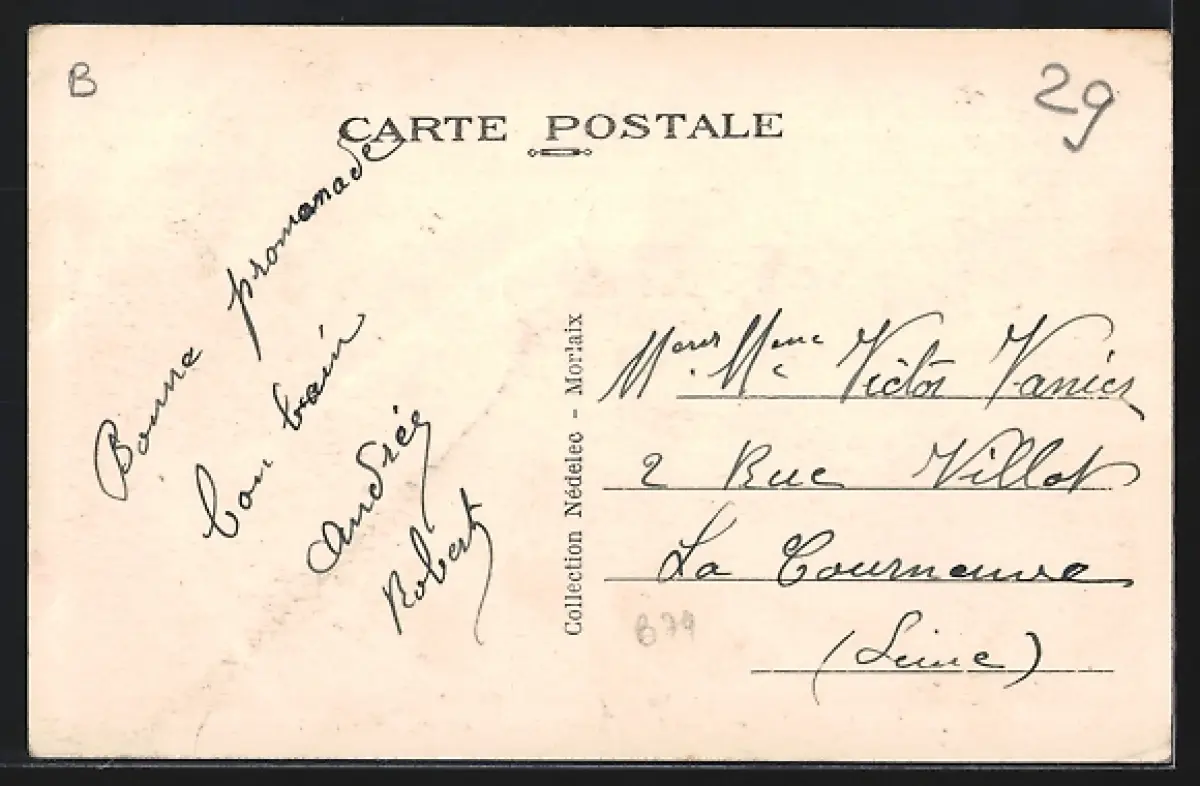 B
29
CARTE POSTALE
Bonne promenade
bon bain
Andrée
Robert
Collection Nédelec - Morlaix
Mme Victor Vanier
2 Rue Villot
La Courneuve
(Seine)
B79